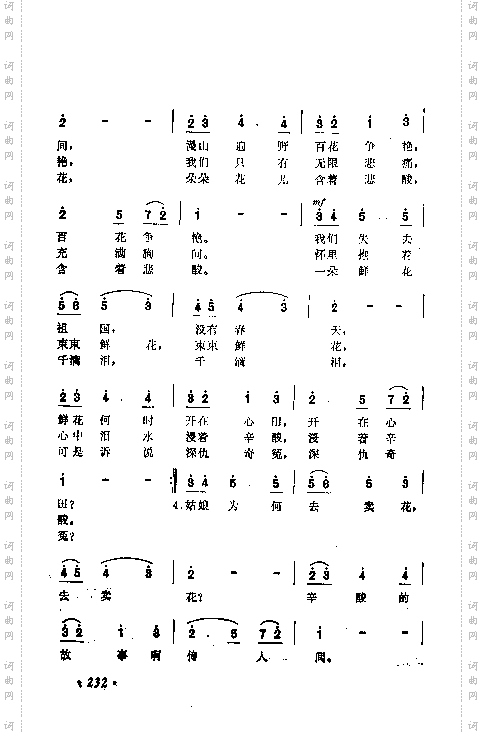 2̇ - - | 2̇ 3̇ 4̇ · 4̇ | 3̇ 2̇ 1̇ 3̇
间， 漫山遍野 百花争艳，
艳， 我们只有 无限悲痛，
花， 朵朵花儿 含着悲酸，
2̇ 5 7 2̇ | 1̇ - - | mf 3̇ 4̇ 5̇ · 5̇
百花争艳。 我们失去
充满胸间。 怀里抱着
含着悲酸。 一朵鲜花
5̇ 6̇ 5̇ 3̇ | 4̇ 5̇ 4̇ 3̇ | 2̇ - -
祖国， 没有春天，
束束鲜花， 束束鲜花，
千滴泪， 千滴泪，
2̇ 3̇ 4̇ · 4̇ | 3̇ 2̇ 1̇ 3̇ | 2̇ 4̇ 2̇
鲜花何时 开在心田， 开在心
心中泪水 浸着辛酸， 浸着辛
可是诉说 深仇奇冤， 深仇奇
1̇ - - :| 3̇ 4̇ 5̇ · 5̇ | 5̇ 6̇ 5̇ 3̇
田？ 4.姑娘为何 去卖花，
酸。
冤？
4̇ 5̇ 4̇ 3̇ | 2̇ - - | 2̇ 3̇ 4̇ · 4̇
去卖花？ 辛酸的
3̇ 2̇ 1̇ 3̇ | 2̇ · 5 7 2̇ | 1̇ - -
故事啊 传人间。
· 232 ·
词曲网